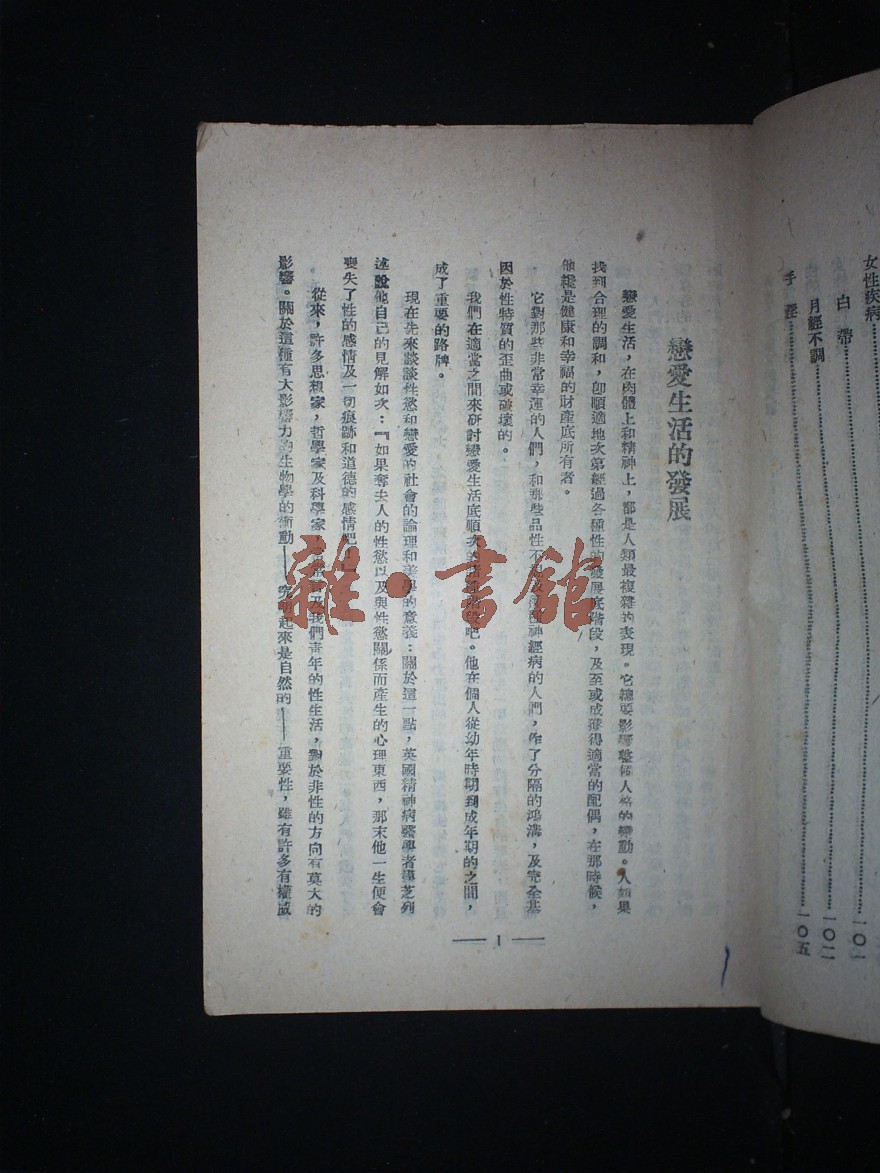 女性疾病
白帶……一〇一
月經不調……一〇二
手淫……一〇五
戀愛生活的發展
戀愛生活,在肉體上和精神上,都是人類最複雜的表現。它總要影響整個人格的變動。人如果
找到合理的調和,卽順適地次第經過各種性的發展底階段,及至或成獲得適當的配偶,在那時候,
他纔是健康和幸福的財產底所有者。
它對那些非常幸運的人們,和那些品性不 神經病的人們,作了分隔的鴻溝,及完全基
因於性特質的歪曲或破壞的。
我們在適當之間來研討戀愛生活底順次的 階段吧。他在個人從幼年時期到成年期的之間,
成了重要的路牌。
現在先來談談性慾和戀愛的社會的論理和美學的意義:關於這一點,英國精神病醫學者 芝列
述說他自己的見解如次:『如果奪去人的性慾以及與性慾關係而產生的心理東西,那末他一生便會
喪失了性的感情及一切痕跡和道德的感情吧!
從來,許多思想家,哲學家及科學家, 及我們靑年的性生活,對於非性的方向有莫大的
影響。關於這種有大影響力的生物學的衝動——究明起來是自然的——重要性,雖有許多有權威
— 1 —
雜·書館